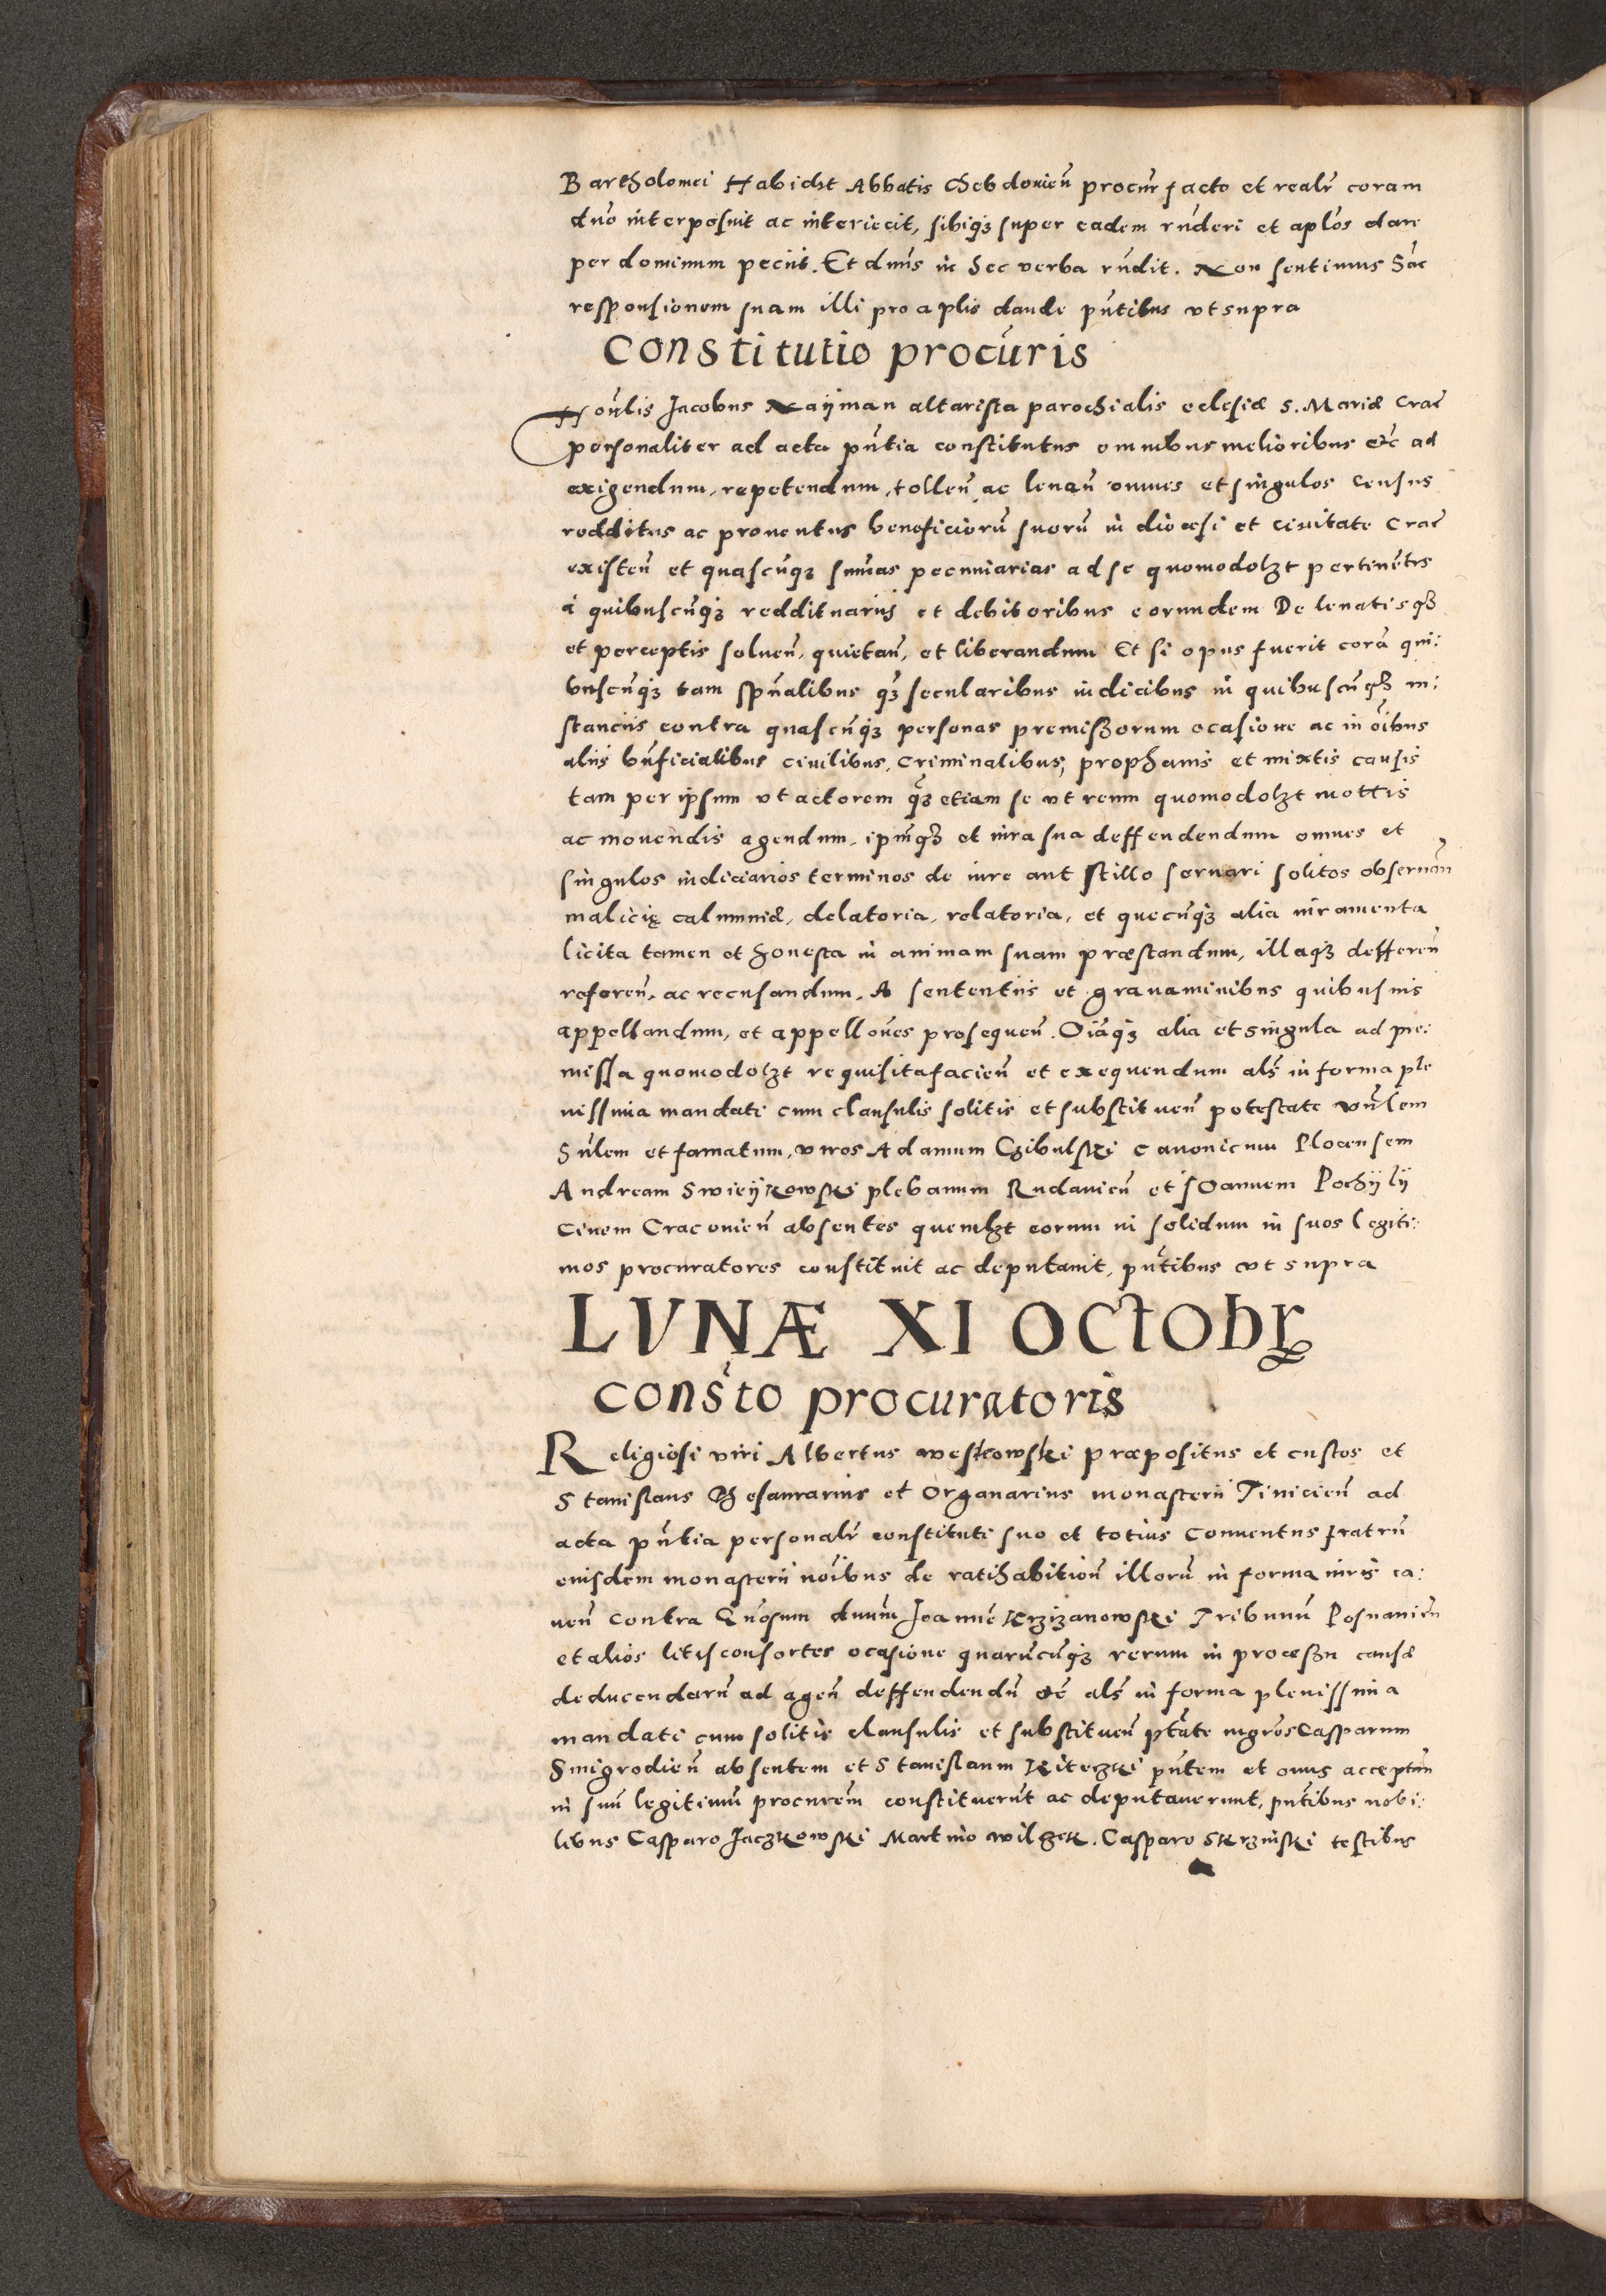 Bartholomei Habicht Abbatis Hebdovien̄ procur̄ facto et realr̄ coram
dn̄o interposuit ac interiecit, sibiqȝ super eadem rn̄deri et aplōs dari
per dominum peciit. Et dn̄us in hec verba rn̄dit. Non sentimus hāc
responsionem suam illi pro aplīs dande pn̄tibus vt supra
Constitutio procūris
Honn̄lis Jacobus Nayman altarista parochialis eclesiæ S. Mariæ Crac̄
personaliter ad acta pn̄tia constitutus omnibus melioribus etc̄ ad
exigendum, repetendum, tollen̄ ac leuan̄ omnes et singulos census
redditus ac prouentus beneficiorū suorū in diœcesi et ciuitate Crac̄
existen̄ et quascūqȝ sum̄as pecuniarias ad se quomodolȝt pertinētes
à quibuscūqȝ reddituariis et debitoribus eorundem De leuatisqȝ
et perceptis soluen̄, quietan̄, et liberandum Et si opus fuerit corā qui:
buscūqȝ tam spūalibus qȝ secularibus iudicibus in quibuscūqȝ in:
stanciis contra quascūqȝ personas premissorum ocasione ac in oībus
aliis bn̄ficialibus ciuilibus, criminalibus, prophanis et mixtis causis
tam per ipsum vt actorem qȝ etiam se vt reum quomodolȝt mottis
ac mouendis agendum, ipm̄qȝ et iura sua deffendendum omnes et
singulos iudiciarios terminos de iure aut stillo seruari solitos obseruan̄
malicię calumniæ, delatoria, relatoria, et quecūqȝ alia iuramenta
licita tamen et honesta in animam suam præstandum, illaqȝ defferen̄
referen̄, ac recusandum, A sententiis et grauaminibus quibusuis
appellandum, et appellōnes prosequen̄. Oīaqȝ alia et singula ad pre:
missa quomodolȝt requisita facien̄ et exequendum als̄ in forma ple
nissima mandati cum clausulis solitis et substituen̄ potestate vn̄lem
hn̄lem et famatum, viros Adamum Czibulski canonicum Plocensem
Andream Swieÿkowski plebanum Rudauien̄ et Joannem Pochÿlÿ
ciuem Cracouien̄ absentes quemlȝt eorum in solidum in suos legiti:
mos procuratores constituit ac deputauit, pn̄tibus vt supra
LVNÆ XI OCTOBR̄
Consto procuratoris
Religiosi viri Albertus weskowski præpositus et custos et
Stanislaus Thesaurarius et Organarius monasterii Tinicien̄ ad
acta pn̄tia personalr̄ constituti suo et totius conuentus fratrū
eiusdem monasterii noībus de ratihabition̄ illorū in forma iuris ca:
uen̄ contra Gn̄osum dn̄um Joannē Krzizanowski Tribunū Posnanien̄
et alios litisconsortes ocasione quarūcūqȝ rerum in processu causæ
deducendarū ad agen̄ deffendendū etc̄ als̄ in forma plenissima
mandati cum solitis clausulis et substituen̄ ptāte mgrōs Casparum
Smigrodien̄ absentem et Stanislaum Kiterzki pn̄tem et onus acceptan̄
in suū legitimū procurem̄ constituerūt ac deputauerunt, pn̄tibus nobi:
libus Casparo Jaczkowski Martino wilgek. Casparo Skrzinski testibus